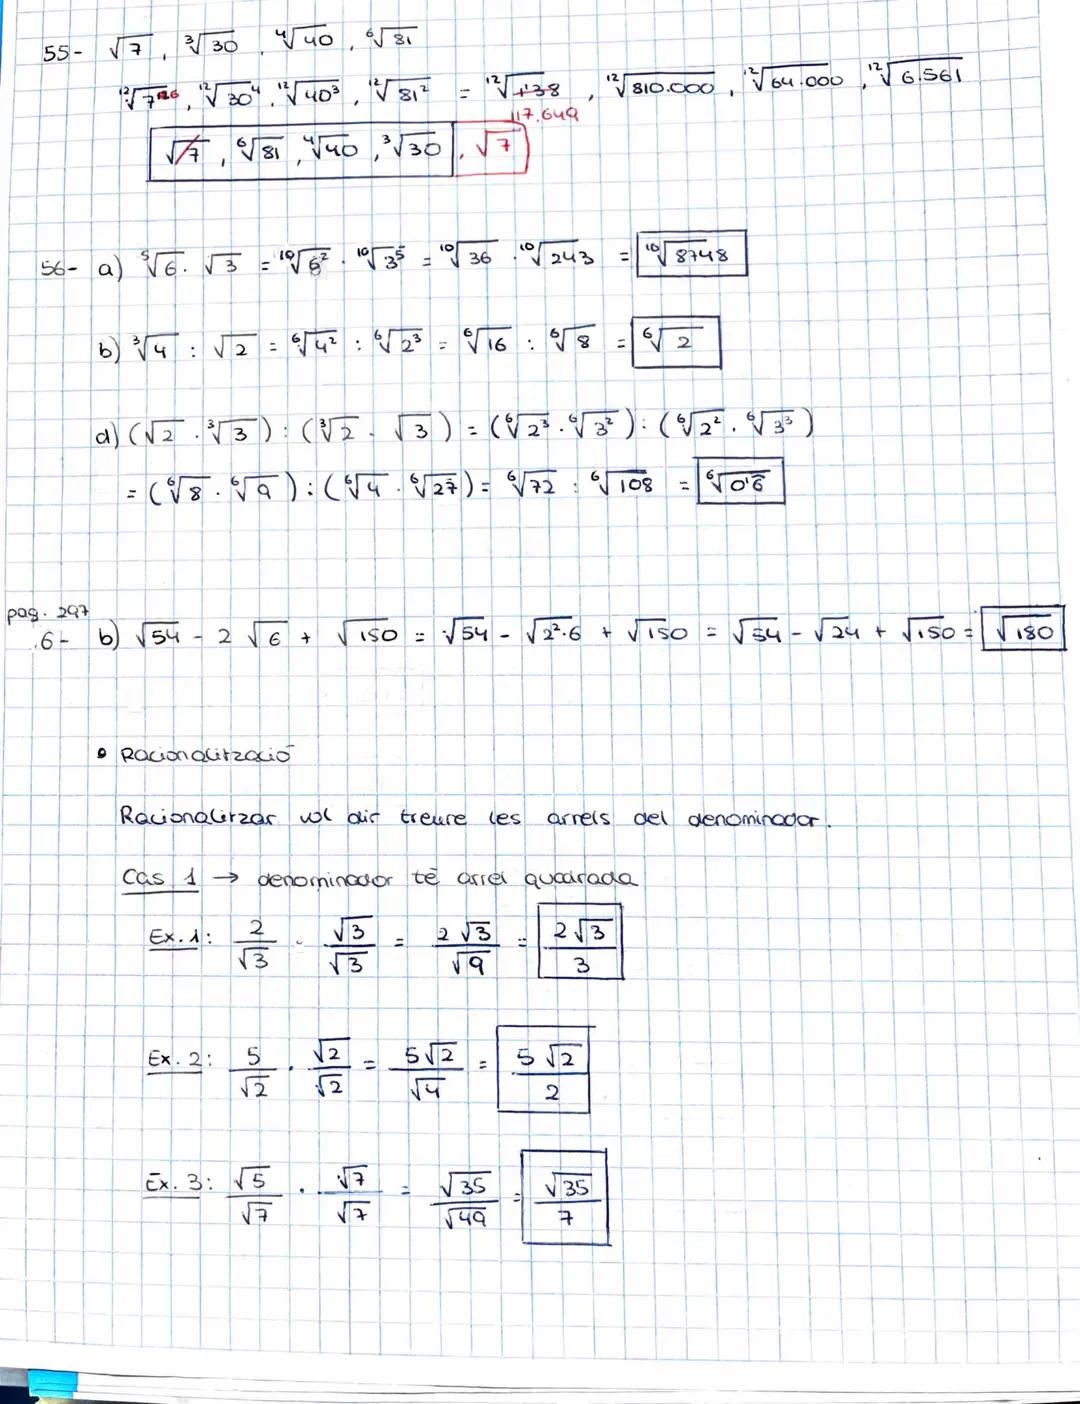 55- √7 , ³√30 , ⁴√40 , ⁶√81
¹²√7¹²⁶ , ¹²√30⁴ , ¹²√40³ , ¹²√81² = ¹²√1'38 , ¹²√810.000 , ¹²√64.000 , ¹²√6.561
117.649
√7 , ⁶√81 , ⁴√40 , ³√30 , √7
56- a) ⁵√6 · √3 = ¹⁰√6² · ¹⁰√3⁵ = ¹⁰√36 · ¹⁰√243 = ¹⁰√8748
b) ³√4 : √2 = ⁶√4² : ⁶√2³ = ⁶√16 : ⁶√8 = ⁶√2
d) (√2 · ³√3) : (³√2 · √3) = (⁶√2³ · ⁶√3²) : (⁶√2² · ⁶√3³)
= (⁶√8 · ⁶√9) : (⁶√4 · ⁶√27) = ⁶√72 : ⁶√108 = ⁶√0'6̂
pag. 297
6- b) √54 - 2 √6 + √150 = √54 - √2²·6 + √150 = √54 - √24 + √150 = √180
• Racionalització
Racionalitzar vol dir treure les arrels del denominador.
Cas 1 → denominador té arrel quadrada
Ex. 1: 2/√3 · √3/√3 = 2√3/√9 = 2√3/3
Ex. 2: 5/√2 · √2/√2 = 5√2/√4 = 5√2/2
Ex. 3: √5/√7 · √7/√7 = √35/√49 = √35/7